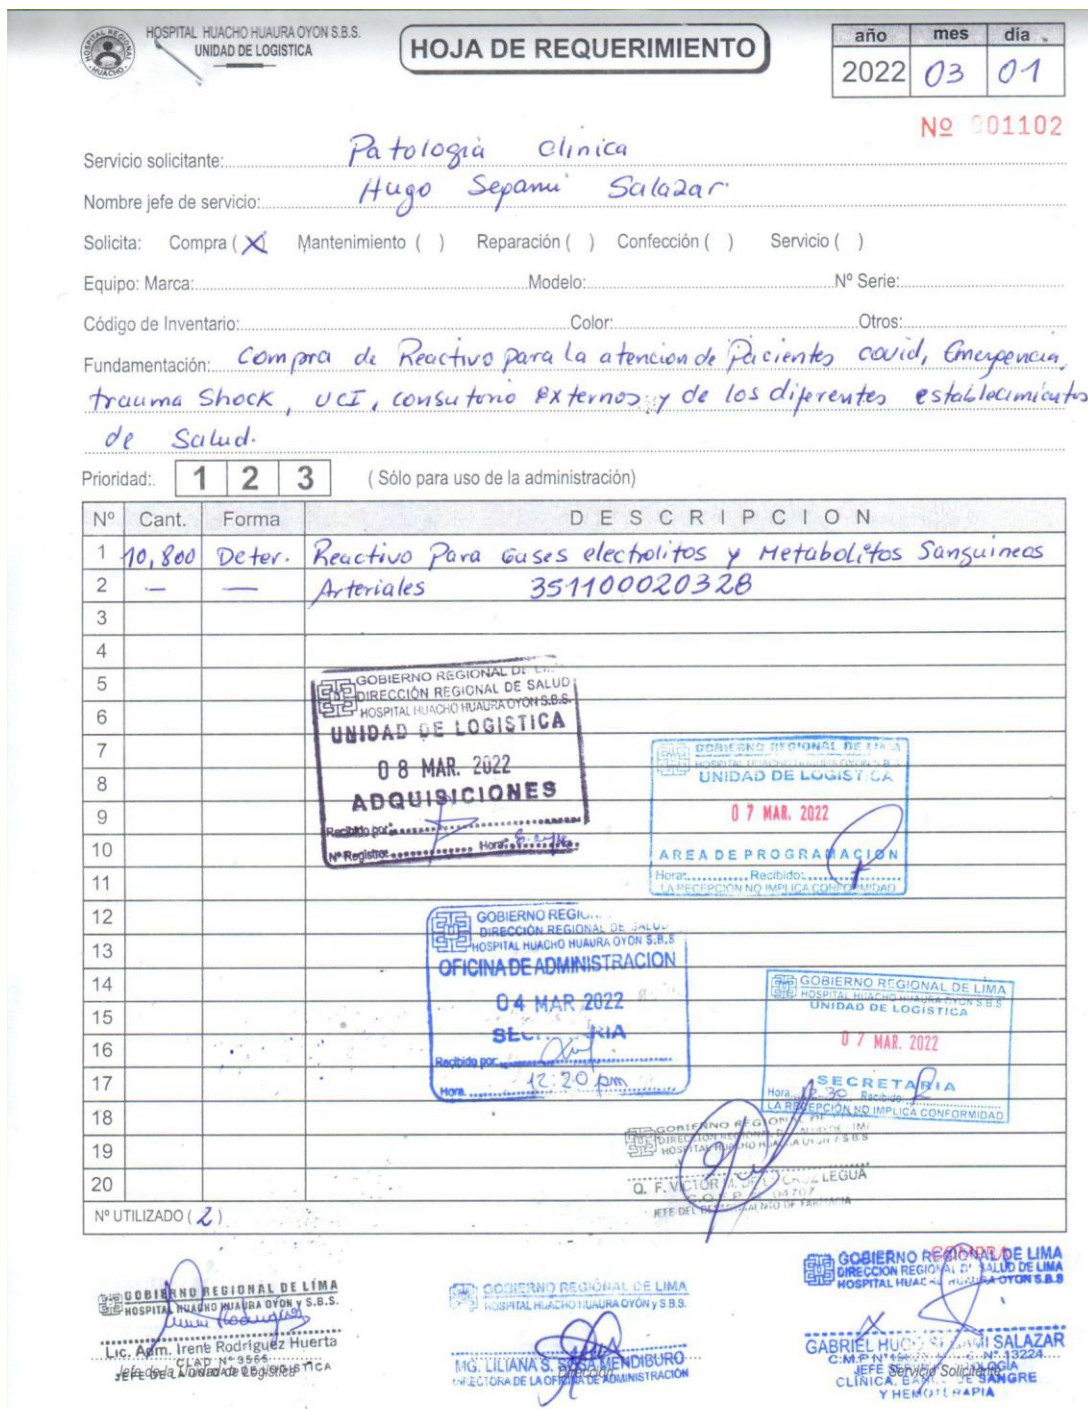 HOSPITAL REGIONAL HUACHO
HOSPITAL HUACHO HUAURA OYON S.B.S.
UNIDAD DE LOGISTICA
HOJA DE REQUERIMIENTO
año mes día
2022 03 01
Nº 001102
Servicio solicitante: Patologia Clinica
Nombre jefe de servicio: Hugo Sepami Salazar.
Solicita: Compra (X) Mantenimiento ( ) Reparación ( ) Confección ( ) Servicio ( )
Equipo: Marca: Modelo: Nº Serie:
Código de Inventario: Color: Otros:
Fundamentación: Compra de Reactivo para la atencion de Pacientes covid, Emergencia,
trauma Shock, UCI, consutorio Externos y de los diferentes establecimientos
de Salud.
Prioridad:. 1 2 3 ( Sólo para uso de la administración)
Nº Cant. Forma DESCRIPCION
1 10,800 Deter. Reactivo Para Gases electrolitos y Metabolitos Sanguineos
2 — — Arteriales 351100020328
3
4
5
6
7
8
9
10
11
12
13
14
15
16
17
18
19
20
Nº UTILIZADO ( 2 )
GOBIERNO REGIONAL DE
DIRECCIÓN REGIONAL DE SALUD
HOSPITAL HUACHO HUAURA OYON S.B.S.
UNIDAD DE LOGISTICA
08 MAR. 2022
ADQUISICIONES
Recibido por:
Nº Registro: Hora:
GOBIERNO REGIONAL DE LIMA
HOSPITAL HUACHO HUAURA OYON S.B.S
UNIDAD DE LOGISTICA
07 MAR. 2022
AREA DE PROGRAMACION
Hora: Recibido:
LA RECEPCION NO IMPLICA CONFORMIDAD
GOBIERNO REGI
DIRECCIÓN REGIONAL DE SALUD
HOSPITAL HUACHO HUAURA OYON S.B.S
OFICINA DE ADMINISTRACION
04 MAR 2022
SECRETARIA
Recibido por:
Hora 12:20 pm
GOBIERNO REGIONAL DE LIMA
HOSPITAL HUACHO HUAURA OYON S.B.S
UNIDAD DE LOGISTICA
07 MAR. 2022
SECRETARIA
Hora: 12.30 Recibido:
LA RECEPCIÓN NO IMPLICA CONFORMIDAD
GOBIERNO REGIONAL DE
DIRECCION REGIONAL DE SALUD DE LIMA
HOSPITAL HUACHO HUAURA OYON Y S.B.S
Q. F. VICTOR M. DE LA CRUZ LEGUA
C.Q.F.P. 04707
JEFE DEL DEPARTAMENTO DE FARMACIA
GOBIERNO REGIONAL DE LÍMA
HOSPITAL HUACHO HUAURA OYON y S.B.S.
Lic. Adm. Irene Rodríguez Huerta
CLAD Nº 3565
JEFE DE LA UNIDAD DE LOGISTICA
Jefe de la Unidad de Logística
GOBIERNO REGIONAL DE LIMA
HOSPITAL HUACHO HUAURA OYÓN y S.B.S.
MG. LILIANA S. SOSA MENDIBURO
Dirección
DIRECTORA DE LA OFICINA DE ADMINISTRACIÓN
COMPRA
GOBIERNO REGIONAL DE LIMA
DIRECCION REGIONAL DE SALUD DE LIMA
HOSPITAL HUACHO HUAURA OYON S.B.S
GABRIEL HUGO SESAMI SALAZAR
C.M.P Nº 13224
JEFE SERVICIO PATOLOGÍA
Servicio Solicitante
CLÍNICA, BANCO DE SANGRE
Y HEMOTERAPIA